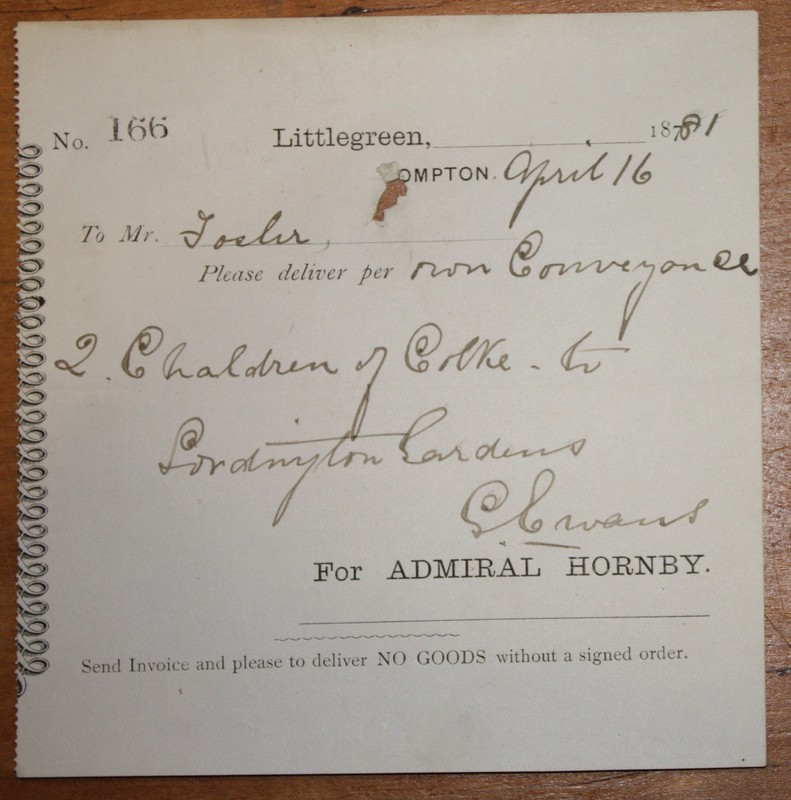 No. 166 Littlegreen, 18781
OMPTON. April 16
To Mr. Tosler,
Please deliver per own Conveyance
2. Chaldren of Colke - to
Lordington Gardens
G. Ewans
For ADMIRAL HORNBY.
Send Invoice and please to deliver NO GOODS without a signed order.